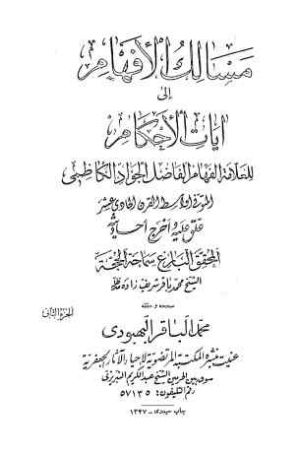 مسالك الأفهام
إلى
آيات الأحكام
للعلامة الفهام الفاضل الجواد الكاظمي
المتوفى أواسط القرن الحادي عشر
علق عليه وأخرج أحاديثه
المحقق البارع سماحة الحجة
الشيخ محمد باقر شريف زاده
صححه و حققه
محمد الباقر البهبودي
الجزء الثاني
عنيت بنشره المكتبة المرتضوية لإحياء الآثار الجعفرية
سوق بين الحرمين الشيخ عبد الكريم التبريزي
رقم التليفون: ٥٧١٣٥
چاپ حیدری - ۱۳۴۷